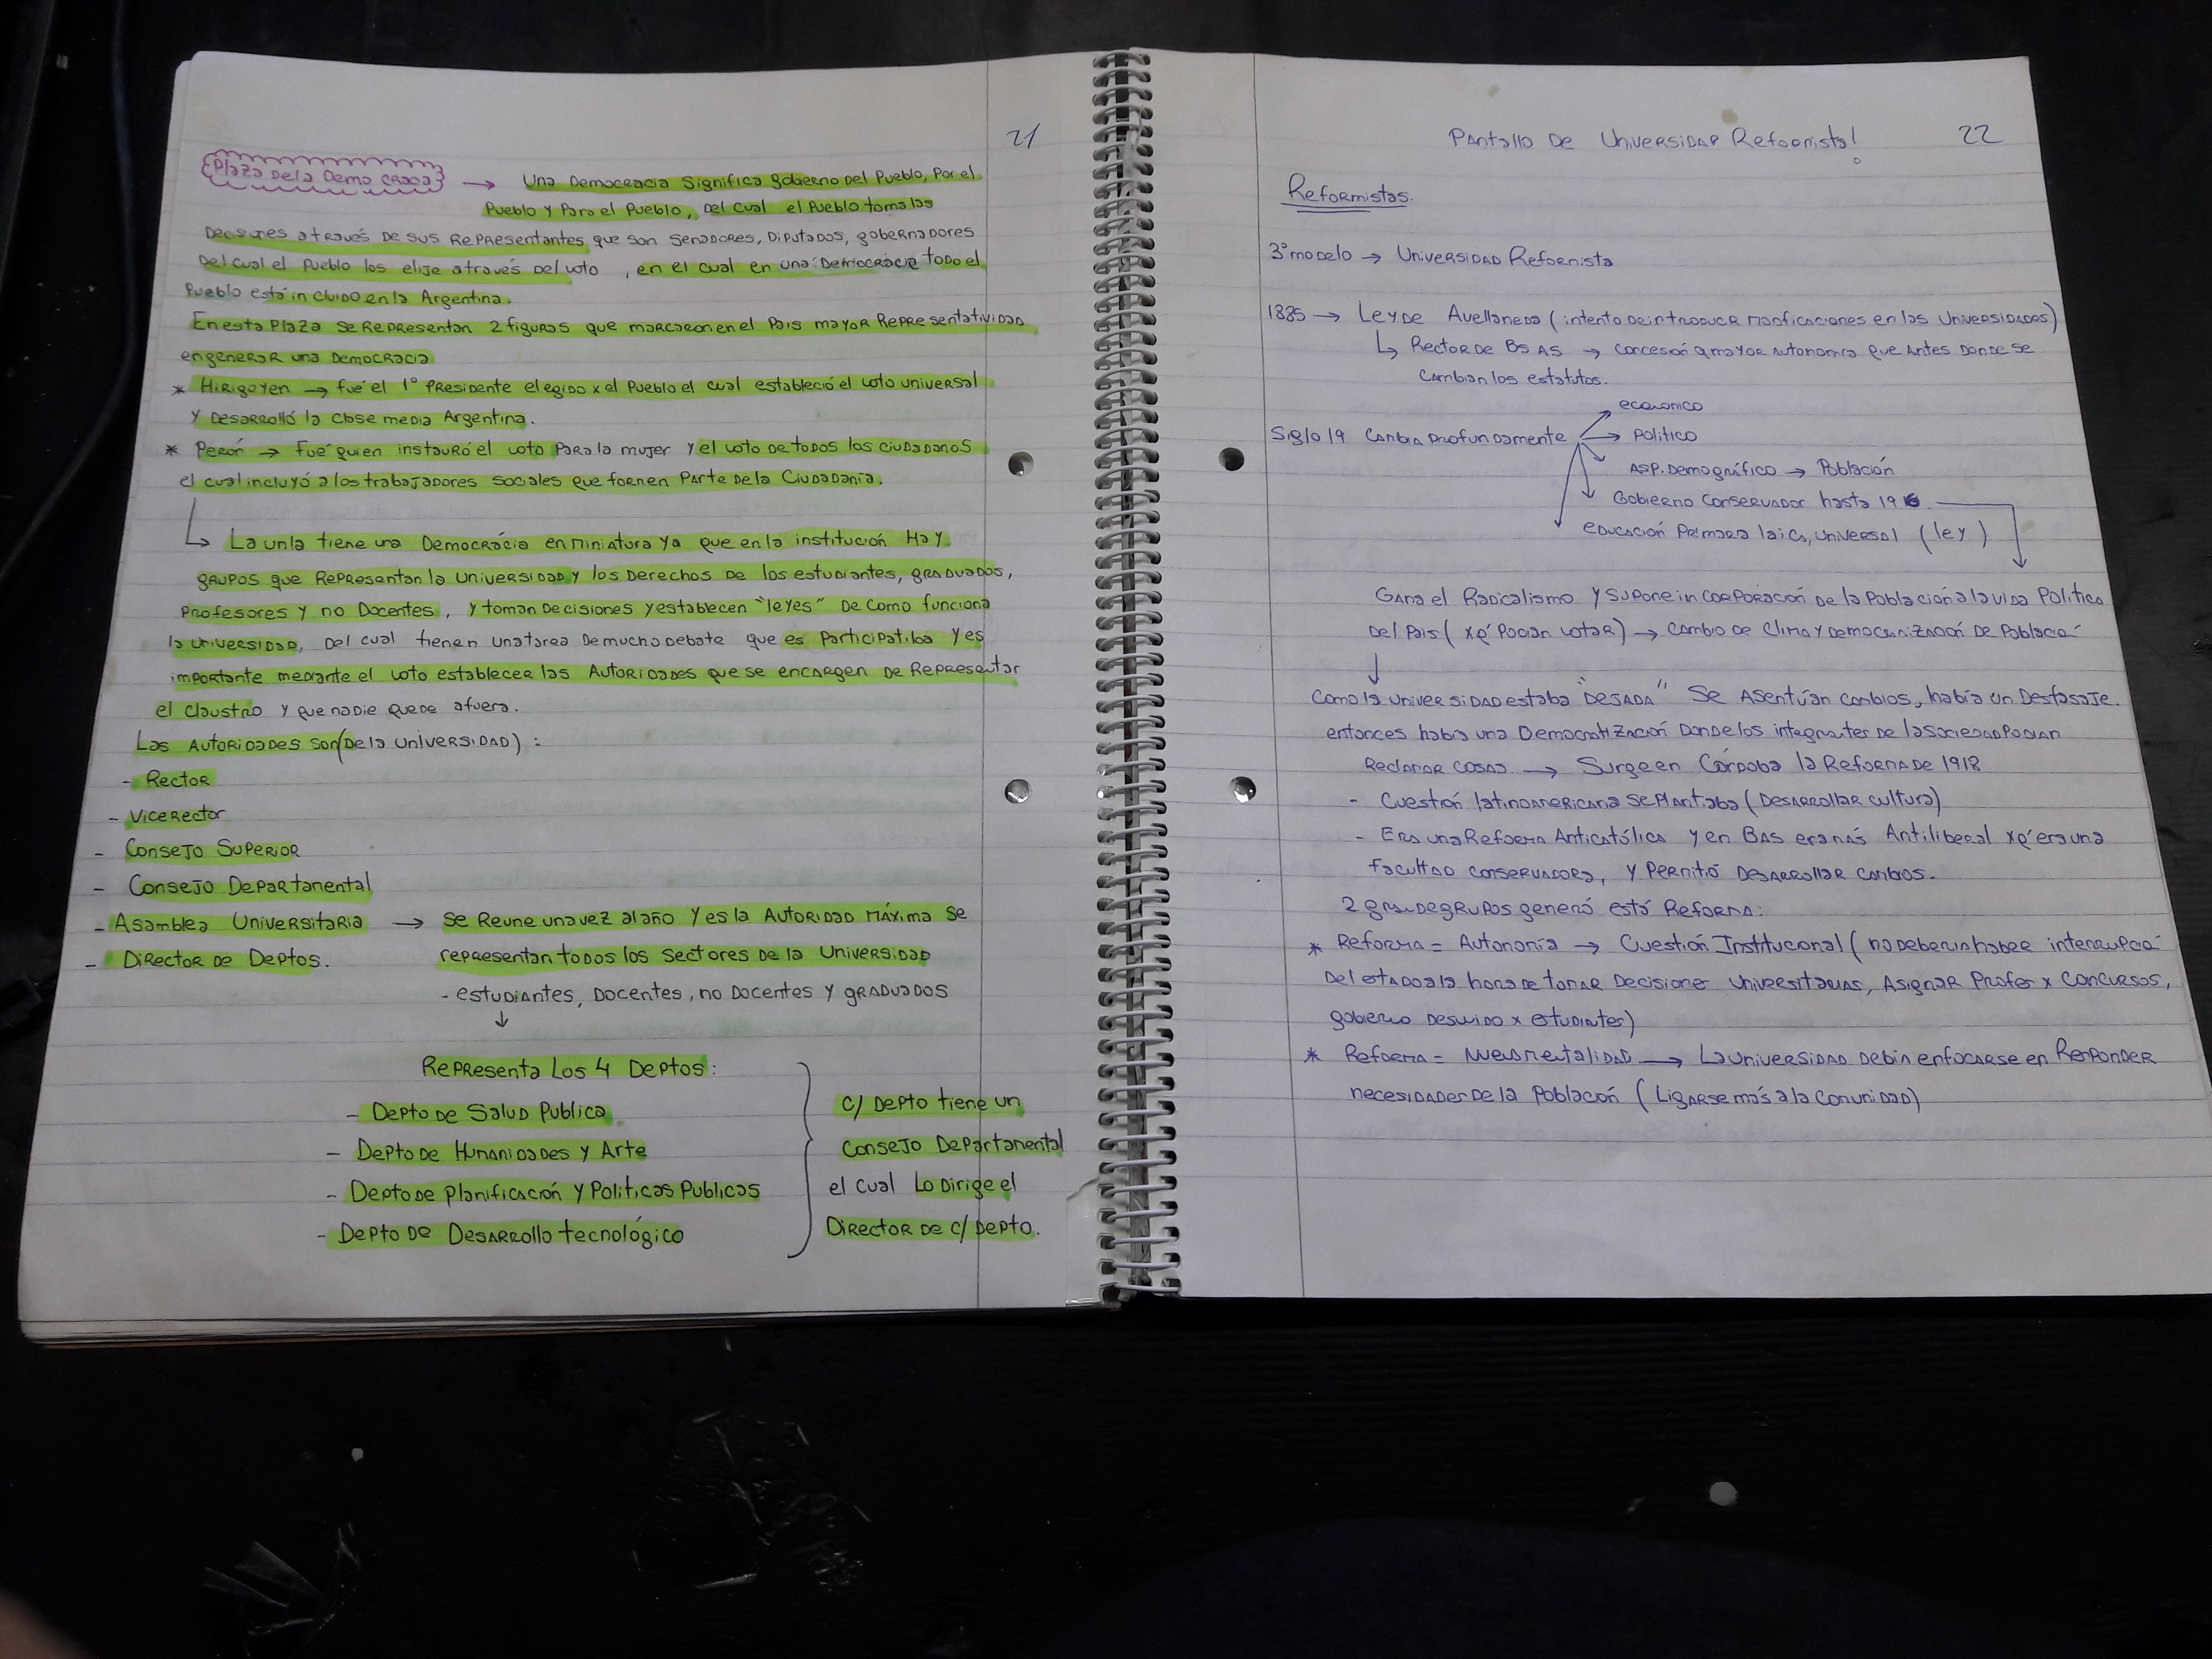 21
Plaza De la Democracia → Una Democracia Significa gobierno Del Pueblo, Por el
Pueblo y Para el Pueblo, Del cual el Pueblo toma las
Decisiones a través De sus Representantes que son Senadores, Diputados, gobernadores
Del cual el Pueblo los elije através Del voto, en el cual en una Democracia todo el
Pueblo está incluido en la Argentina.
En esta Plaza se Representan 2 figuras que marcaron en el Pais mayor Representatividad
en generar una Democracia
* Hirigoyen → fue el 1° Presidente elegido x el Pueblo el cual estableció el voto universal
y Desarrolló la clase media Argentina.
* Perón → fué quien instauró el voto Para la mujer y el voto de todos los ciudadanos
el cual incluyó a los trabajadores sociales que formen Parte De la Ciudadania.
↳ La unla tiene una Democracia en miniatura ya que en la institución Hay
grupos que Representan la Universidad y los Derechos De los estudiantes, graduados,
Profesores y no Docentes, y toman Decisiones y establecen "leyes" De como funciona
la universidad, Del cual tienen una tarea De mucho debate que es Participativa y es
importante mediante el voto establecer las Autoridades que se encargen De Representar
el claustro y que nadie quede afuera.
Las Autoridades son (De la Universidad) :
- Rector
- Vicerector
- Consejo Superior
- Consejo Departamental
- Asamblea Universitaria → se Reune una vez al año y es la Autoridad Máxima se
representan todos los Sectores de la Universidad
- Director De Deptos.
- estudiantes, Docentes, no Docentes y graduados
↓
Representa Los 4 Deptos:
- Depto de Salud Publica
- Depto De Humanidades y Arte
- Depto de Planificación y Politicas Publicas
- Depto De Desarrollo tecnológico
c/ Depto tiene un
Consejo Departamental
el cual Lo Dirige el
Director De c/ Depto.
Pantallo De Universidad Reformista! 22
Reformistas.
3° modelo → Universidad Reformista
1885 → Ley De Avellaneda (intento De introducir modificaciones en las Universidades)
↳ Rector De Bs As → concesión a mayor autonomia que antes Donde se
cambian los estatutos.
Siglo 19 Cambia Profundamente → economico
→ Politico
Asp. Demográfico → Población
Gobierno Conservador hasta 1916
educación Primaria laica, universal (ley)
Gana el Radicalismo y supone incorporación De la Población a la vida Politica
Del Pais (xq' Podian votar) → cambio De clima y democratización De Població
↓
Como la Universidad estaba "Dejada" Se Asentúan cambios, había un Desfasaje.
entonces habia una Democratización Donde los integrantes De la sociedad Podian
Reclamar cosas → Surge en Córdoba la Reforma De 1918
- Cuestión latinoamericana se Plantiaba (Desarrollar cultura)
- Era una Reforma Anticatólica y en BAs era más Antiliberal xq' era una
facultad conservadora, y Permitió Desarrollar cambios.
2 grande grupos generó está Reforma:
* Reforma = Autonomía → Cuestión Institucional (no Deberia haber interrupció
Del estado a la hora de tomar Decisione universitarias, Asignar Profes x Concursos,
gobierno x estudiantes)
* Reforma = Nueva mentalidad → La universidad Debia enfocarse en Responder
necesidades De la Población (Ligarse más a la Comunidad)